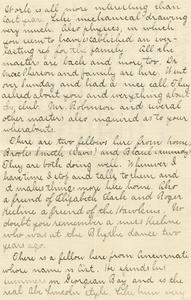 Work is all more interesting than
last year. Like mechanical drawing
very much. Also physics, in which
you seem to have established an ever-
lasting rep for the family. All the
masters are back and more too. Dr.
MacPherson and family are here. Went
over Sunday and had a nice call. They
asked about you and everything about
club. Mr. Robinson and several
other masters also inquired as to your
whereabouts.
There are two fellows here from home,
Smith and
They are both doing well. Whenever I
have time I stop and talk to them and
it makes things more like home. Also
a friend of Elizabeth Clark and Roger
a friend of the
doubt you remember a
who was at the Blythe dance two
years ago.
There is a fellow here from Cincinnati
whose name is Art. He spends his
summers in Georgian Bay and is the
real Abe Lincoln style. Like him very